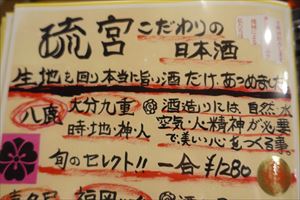 琉宮こだわりの
日本酒
生地を回り本当に旨い酒だけ、あつめました
八鹿 大分九重 酒造りには、自然、水
時・地・神人 空気・人精神が必要
で美しい心をつくる事。
旬のセレクト!! 一合 ¥1280
喜多屋 福岡